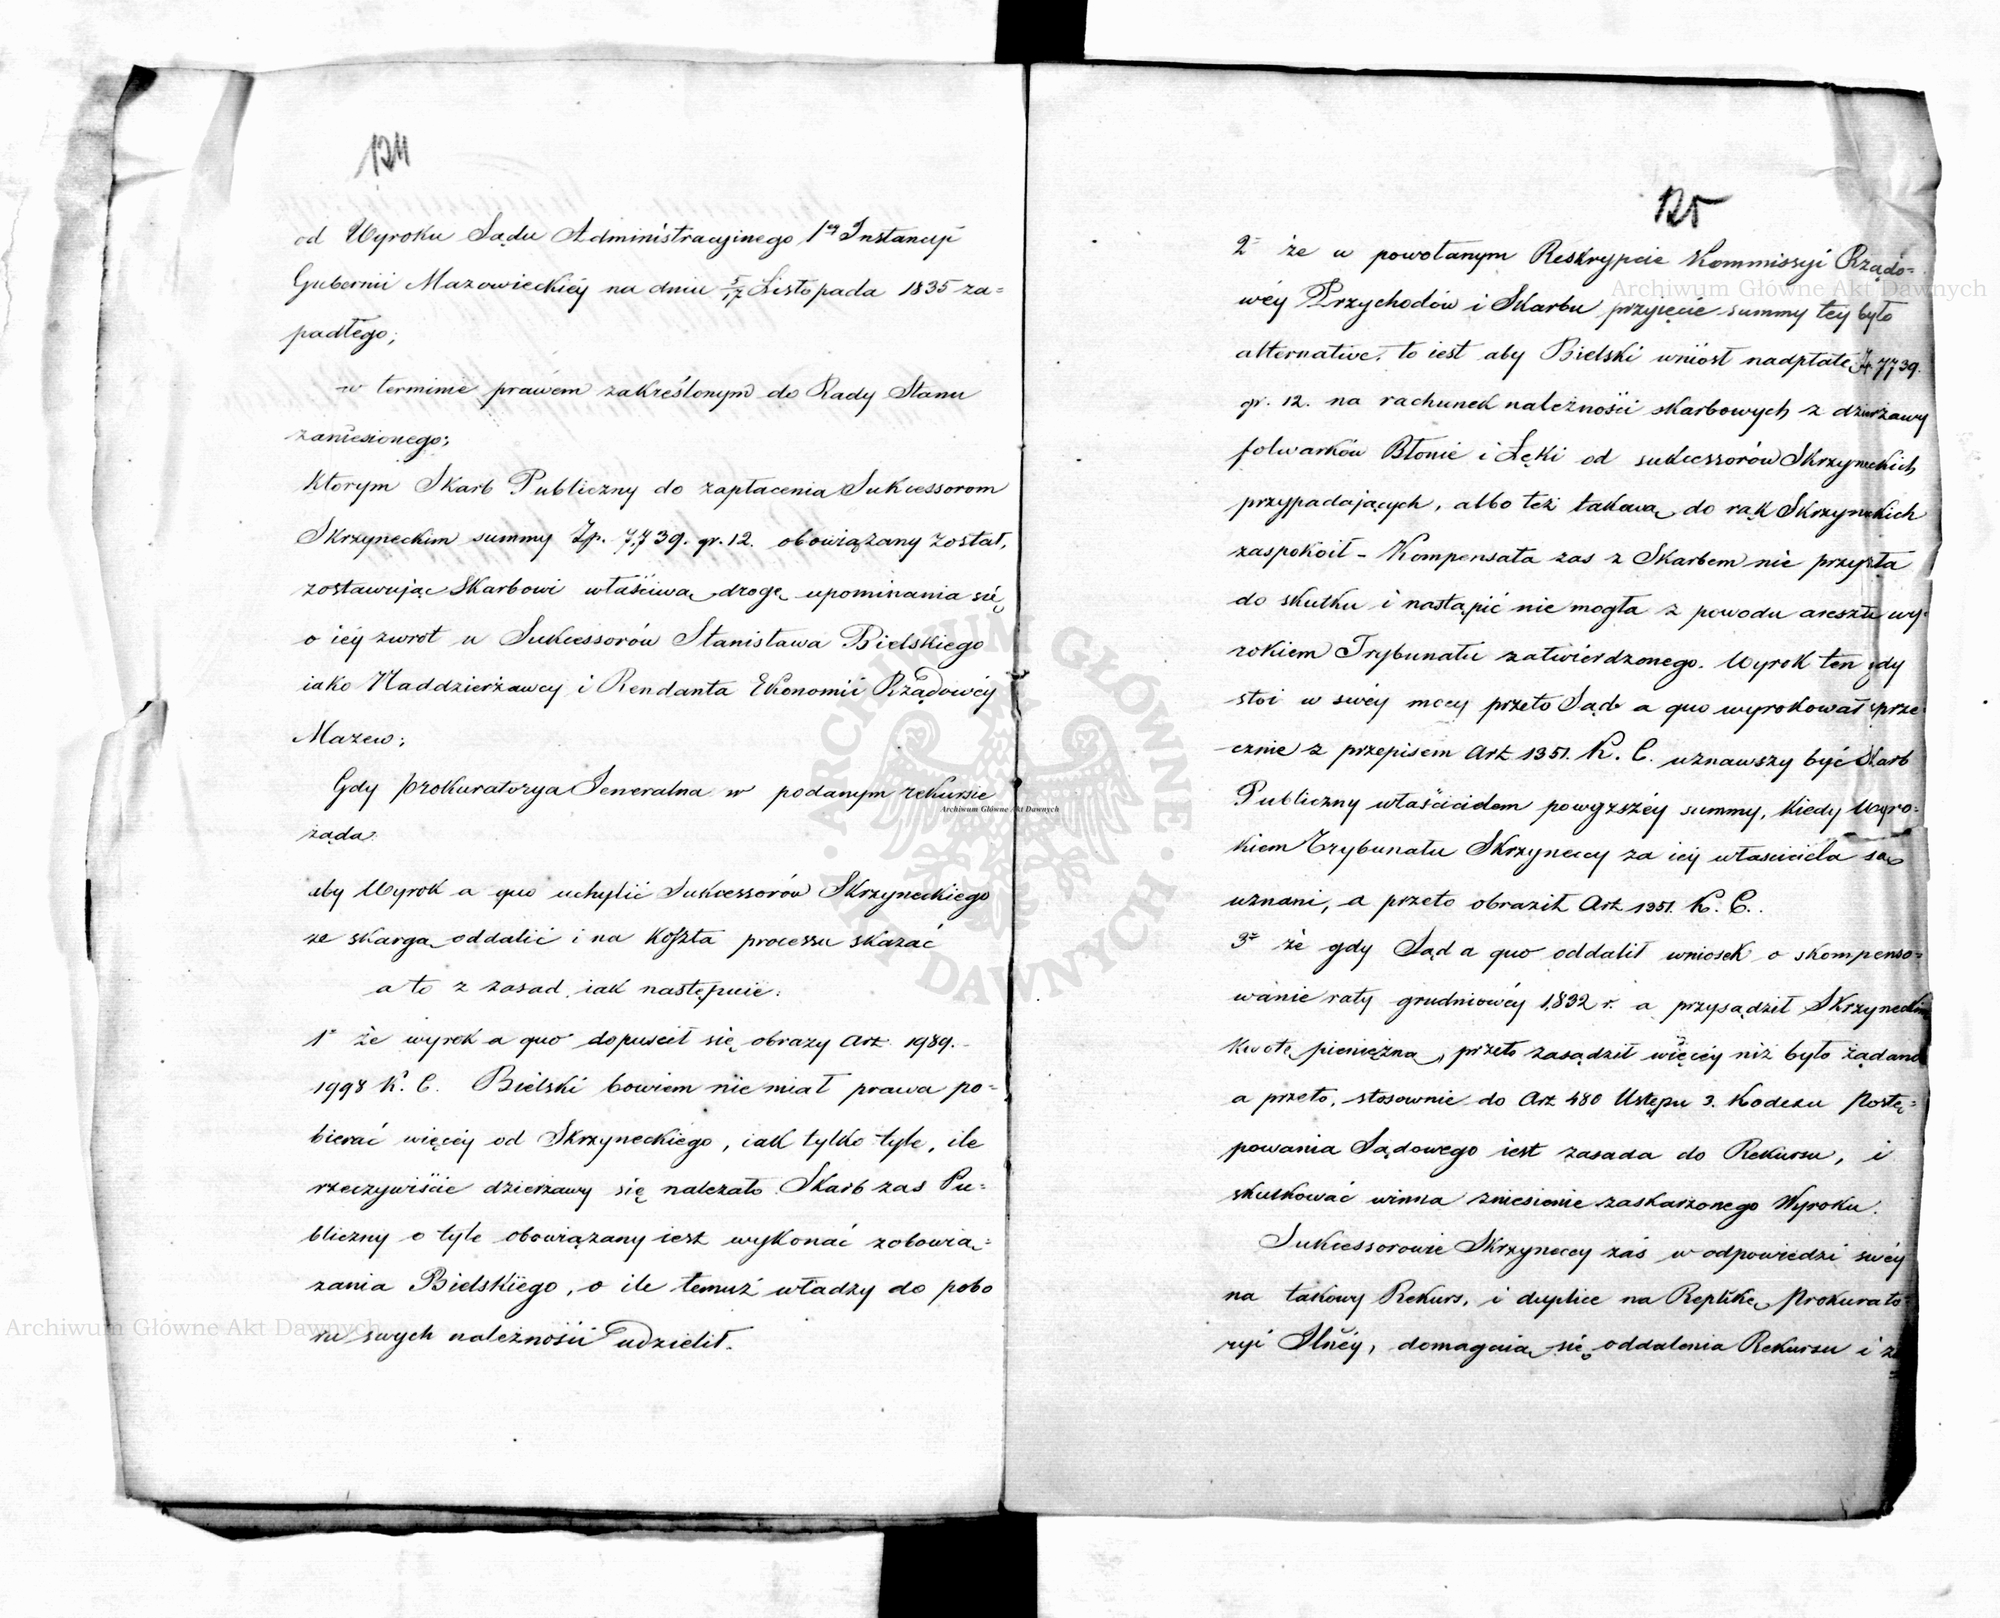 124
od Wyroku Sądu Administracyinego 1éy Instancyi
Gubernii Mazowieckiéy na dniu 5/17 Listopada 1835 za=
padłego;
w terminie prawem zakreślonym do Rady Stanu
zaniesionego;
Którym Skarb Publiczny do zapłacenia Sukcessorom
Skrzyneckim summy Zp. 7,739. gr. 12. obowiązany został,
zostawując Skarbowi właściwą drogę upominania się
o iéy zwrot u Sukcessorów Stanisława Bielskiego
iako Naddzierżawcy i Rendanta Ekonomii Rządowéy
Mazew;
Gdy Prokuratorya Jeneralna w podanym rekursie
żąda:
aby Wyrok a quo uchylić Sukcessorów Skrzyneckiego
ze skargą oddalić i na koszta processu skazać
a to z zasad iak następuie:
1° że wyrok a quo dopuścił się obrazy Art. 1989.
1998 K. C. Bielski bowiem nie miał prawa po=
bierać więcéy od Skrzyneckiego, iak tylko tyle, ile
rzeczywiście dzierżawy się należało. Skarb zas Pu=
bliczny o tyle obowiązany iest wykonać zobowią=
zania Bielskiego, o ile temuż władzy do pobo
ru swych należności udzielił.
125
2° że w powołanym Reskrypcie Kommissyi Rządo=
wéy Przychodów i Skarbu przyięcie summy téy było
alternative, to iest aby Bielski wniósł nadpłatę Zł 7739.
gr. 12. na rachunek należności skarbowych z dzierżawy
folwarków Błonie i Łęki od sukcessorów Skrzyneckich
przypadających, albo też takową do rąk Skrzyneckich
zaspokoił - Kompensata zas z Skarbem nie przyszła
do skutku i nastąpić nie mogła z powodu aresztu wy=
rokiem Trybunału zatwierdzonego. Wyrok ten gdy
stoi w swéy mocy przeto Sąd a quo wyrokował sprze=
cznie z przepisem Art 1351. K. C. uznawszy być Skarb
Publiczny właścicielem powyższéy summy, kiedy Wyro=
kiem Trybunału Skrzyneccy za iéy właściciela są
uznani, a przeto obraził Art 1351. K. C..
3° że gdy Sąd a quo oddalił wniosek o skompenso=
wanie raty grudniowéy 1832 r. a przysądził Skrzyneckim
kwotę pieniężną, przeto zasądził więcéy niż było żądano
a przeto, stosownie do Art 480 Ustępu 3. Kodexu Postę=
powania Sądowego iest zasada do Rekursu, i
skutkować winna zniesienie zaskarżonego Wyroku.
Sukcessorowie Skrzyneccy zaś w odpowiedzi swéy
na takowy Rekurs, i duplice na Replikę Prokurato=
ryi Jlnéy, domagaią się oddalenia Rekursu i za
Archiwum Główne Akt Dawnych
Archiwum Główne Akt Dawnych
Archiwum Główne Akt Dawnych
ARCHIWUM GŁÓWNE · AKT DAWNYCH ·